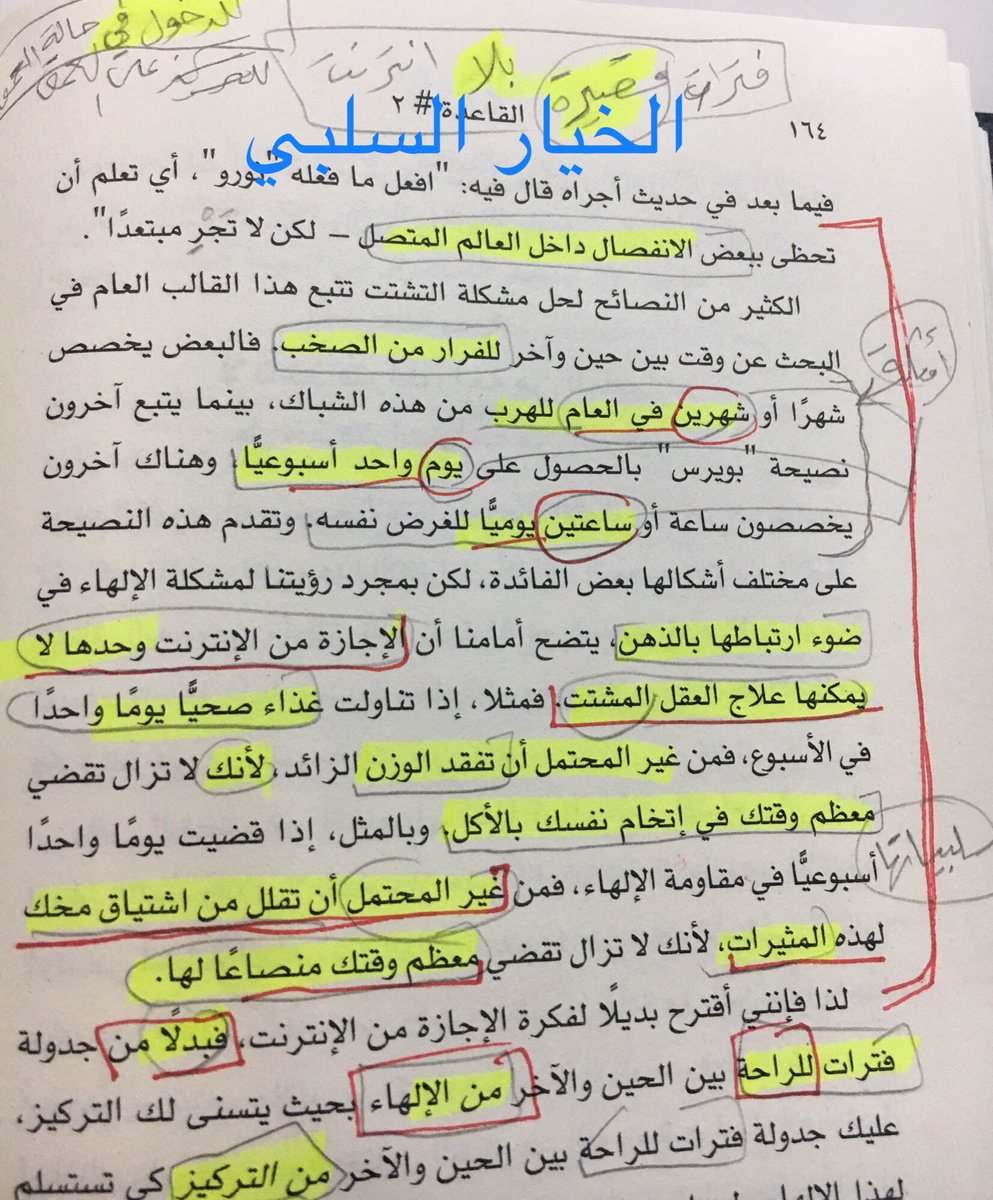 للدخول في حالة
للتركيز على
فترات قصيرة بلا انترنت
١٦٤
القاعدة # ٢
الخيار السلبي
فيما بعد في حديث أجراه قال فيه: "افعل ما فعله "ثورو"، أي تعلم أن
تحظى ببعض الانفصال داخل العالم المتصل – لكن لا تَجْرِ مبتعدًا".
الكثير من النصائح لحل مشكلة التشتت تتبع هذا القالب العام في
البحث عن وقت بين حين وآخر للفرار من الصخب. فالبعض يخصص
شهرًا أو شهرين في العام للهرب من هذه الشباك، بينما يتبع آخرون
نصيحة "بويرس" بالحصول على يوم واحد أسبوعيًّا، وهناك آخرون
يخصصون ساعة أو ساعتين يوميًّا للغرض نفسه. وتقدم هذه النصيحة
على مختلف أشكالها بعض الفائدة، لكن بمجرد رؤيتنا لمشكلة الإلهاء في
ضوء ارتباطها بالذهن، يتضح أمامنا أن الإجازة من الإنترنت وحدها لا
يمكنها علاج العقل المشتت. فمثلا، إذا تناولت غذاء صحيًّا يومًا واحدًا
في الأسبوع، فمن غير المحتمل أن تفقد الوزن الزائد، لأنك لا تزال تقضي
معظم وقتك في إتخام نفسك بالأكل، وبالمثل، إذا قضيت يومًا واحدًا
أسبوعيًّا في مقاومة الإلهاء، فمن غير المحتمل أن تقلل من اشتياق مخك
لهذه المثيرات، لأنك لا تزال تقضي معظم وقتك منصاعًا لها.
لذا فإنني أقترح بديلًا لفكرة الإجازة من الإنترنت، فبدلًا من جدولة
فترات للراحة بين الحين والآخر من الإلهاء بحيث يتسنى لك التركيز،
عليك جدولة فترات للراحة بين الحين والآخر من التركيز كي تستسلم
لهذا الإلهاء